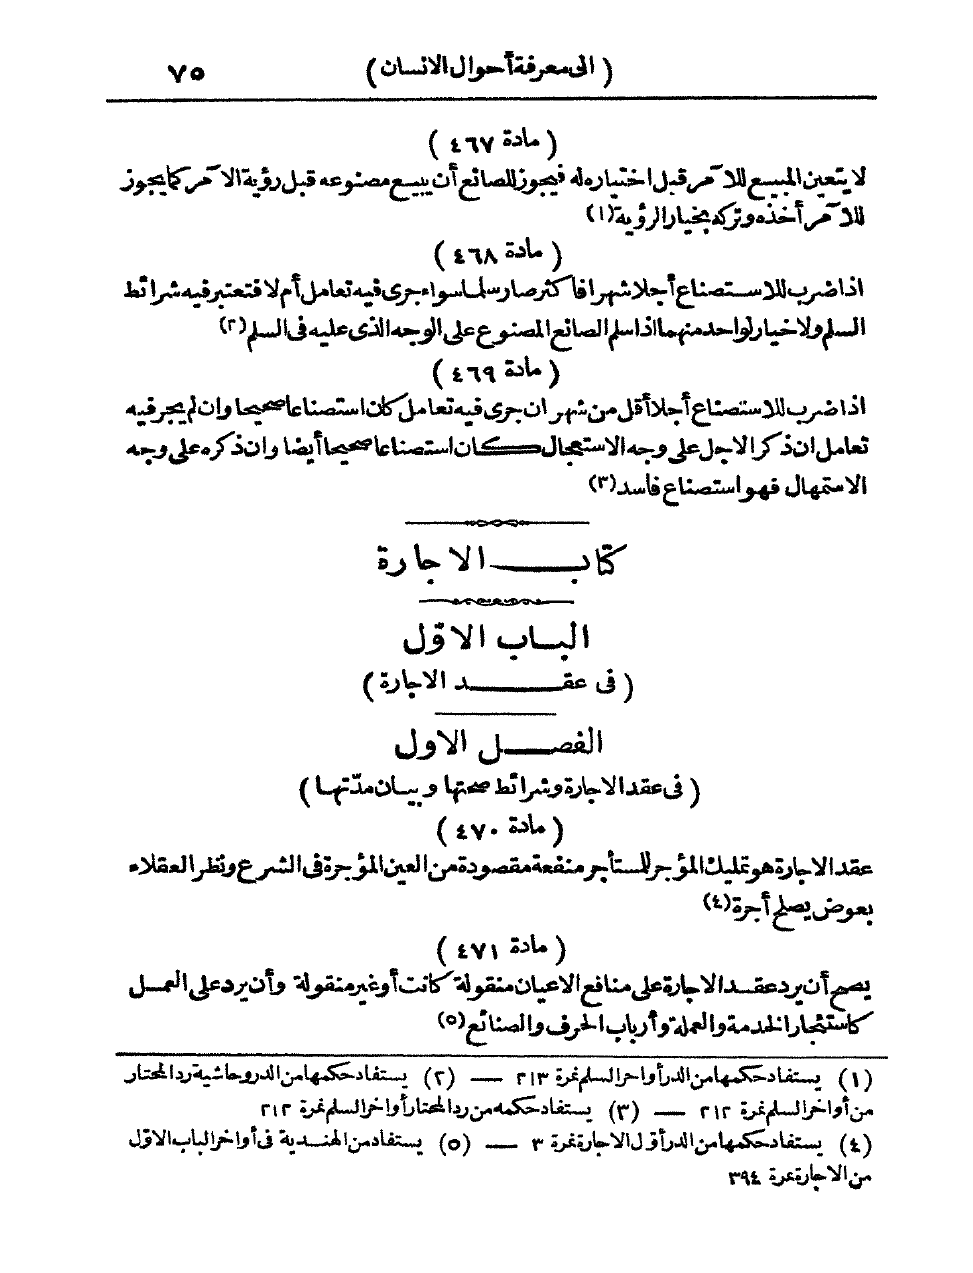 (الى معرفة أحوال الانسان) ٧٥
(مادة ٤٦٧)
لا يتعين المبيع للآمر قبل اختياره له فيجوز للصانع أن يبيع مصنوعه قبل رؤية الآمر كما يجوز
للآمر أخذه وتركه بخيار الرؤية (١)
(مادة ٤٦٨)
اذا ضرب للاستصناع أجلا شهرا فأكثر صار سلما سواء جرى فيه تعامل أم لا فتعتبر فيه شرائط
السلم ولا خيار لواحد منهما اذا سلم الصانع المصنوع على الوجه الذى عليه فى السلم (٢)
(مادة ٤٦٩)
اذا ضرب للاستصناع أجلا أقل من شهر ان جرى فيه تعامل كان استصناعا صحيحا وان لم يجر فيه
تعامل ان ذكر الاجل على وجه الاستعجال كان استصناعا صحيحا أيضا وان ذكره على وجه
الاستمهال فهو استصناع فاسد (٣)
كتاب الاجارة
الباب الاوّل
(فى عقد الاجارة)
الفصل الاول
(فى عقد الاجارة وشرائط صحتها وبيان مدّتها)
(مادة ٤٧٠)
عقد الاجارة هو تمليك المؤجر للمستأجر منفعة مقصودة من العين المؤجرة فى الشرع ونظر العقلاء
بعوض يصلح أجرة (٤)
(مادة ٤٧١)
يصح أن يرد عقد الاجارة على منافع الاعيان منقولة كانت أو غير منقولة وأن يرد على العمل
كاستئجار الخدمة والعملة وأرباب الحرف والصنائع (٥)
(١) يستفاد حكمها من الدر أواخر السلم نمرة ٢١٣ — (٢) يستفاد حكمها من الدر وحاشية رد المحتار
من أواخر السلم نمرة ٢١٢ — (٣) يستفاد حكمه من رد المحتار أواخر السلم نمرة ٢١٢
(٤) يستفاد حكمها من الدر أوّل الاجارة نمرة ٣ — (٥) يستفاد من الهندية فى أواخر الباب الاوّل
من الاجارة نمرة ٣٩٤